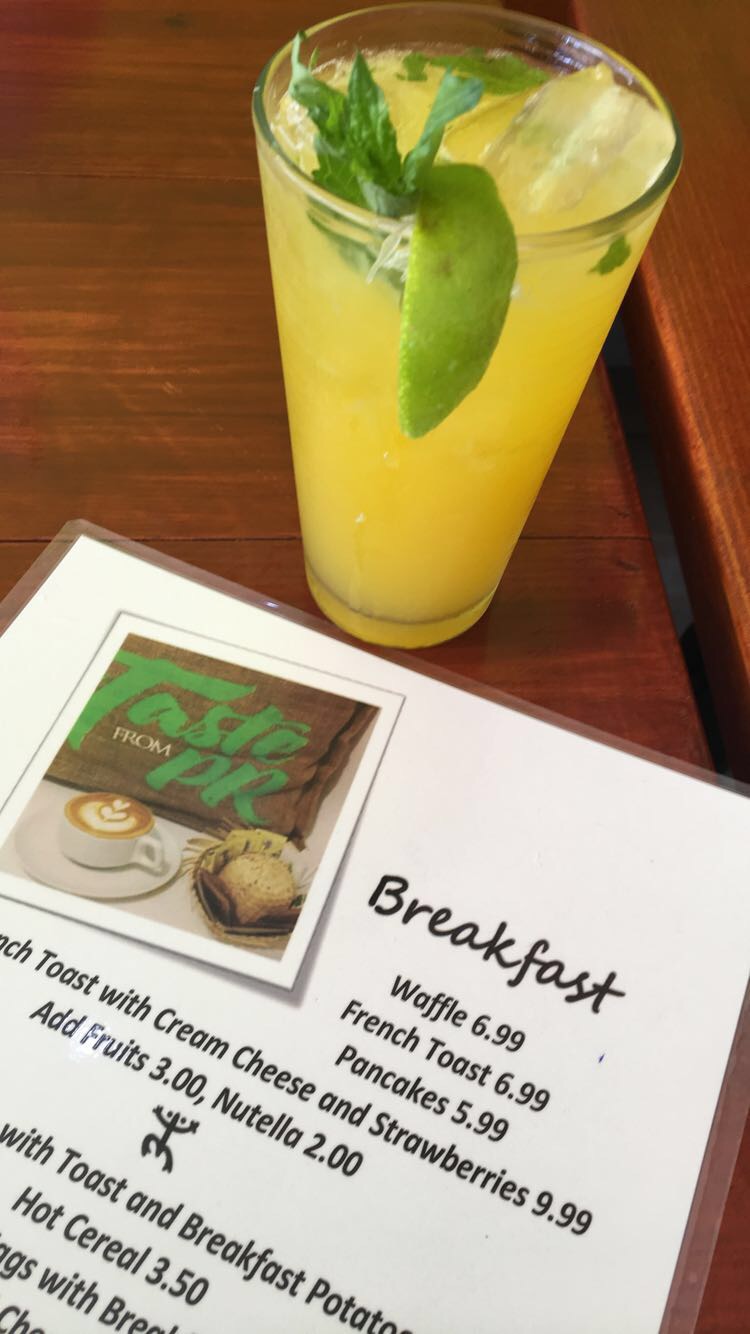 Taste
FROM
PR
Breakfast
Waffle 6.99
French Toast 6.99
Pancakes 5.99
Toast with Cream Cheese and Strawberries 9.99
Add Fruits 3.00, Nutella 2.00
with Toast and Breakfast
Hot Cereal 3.50
with